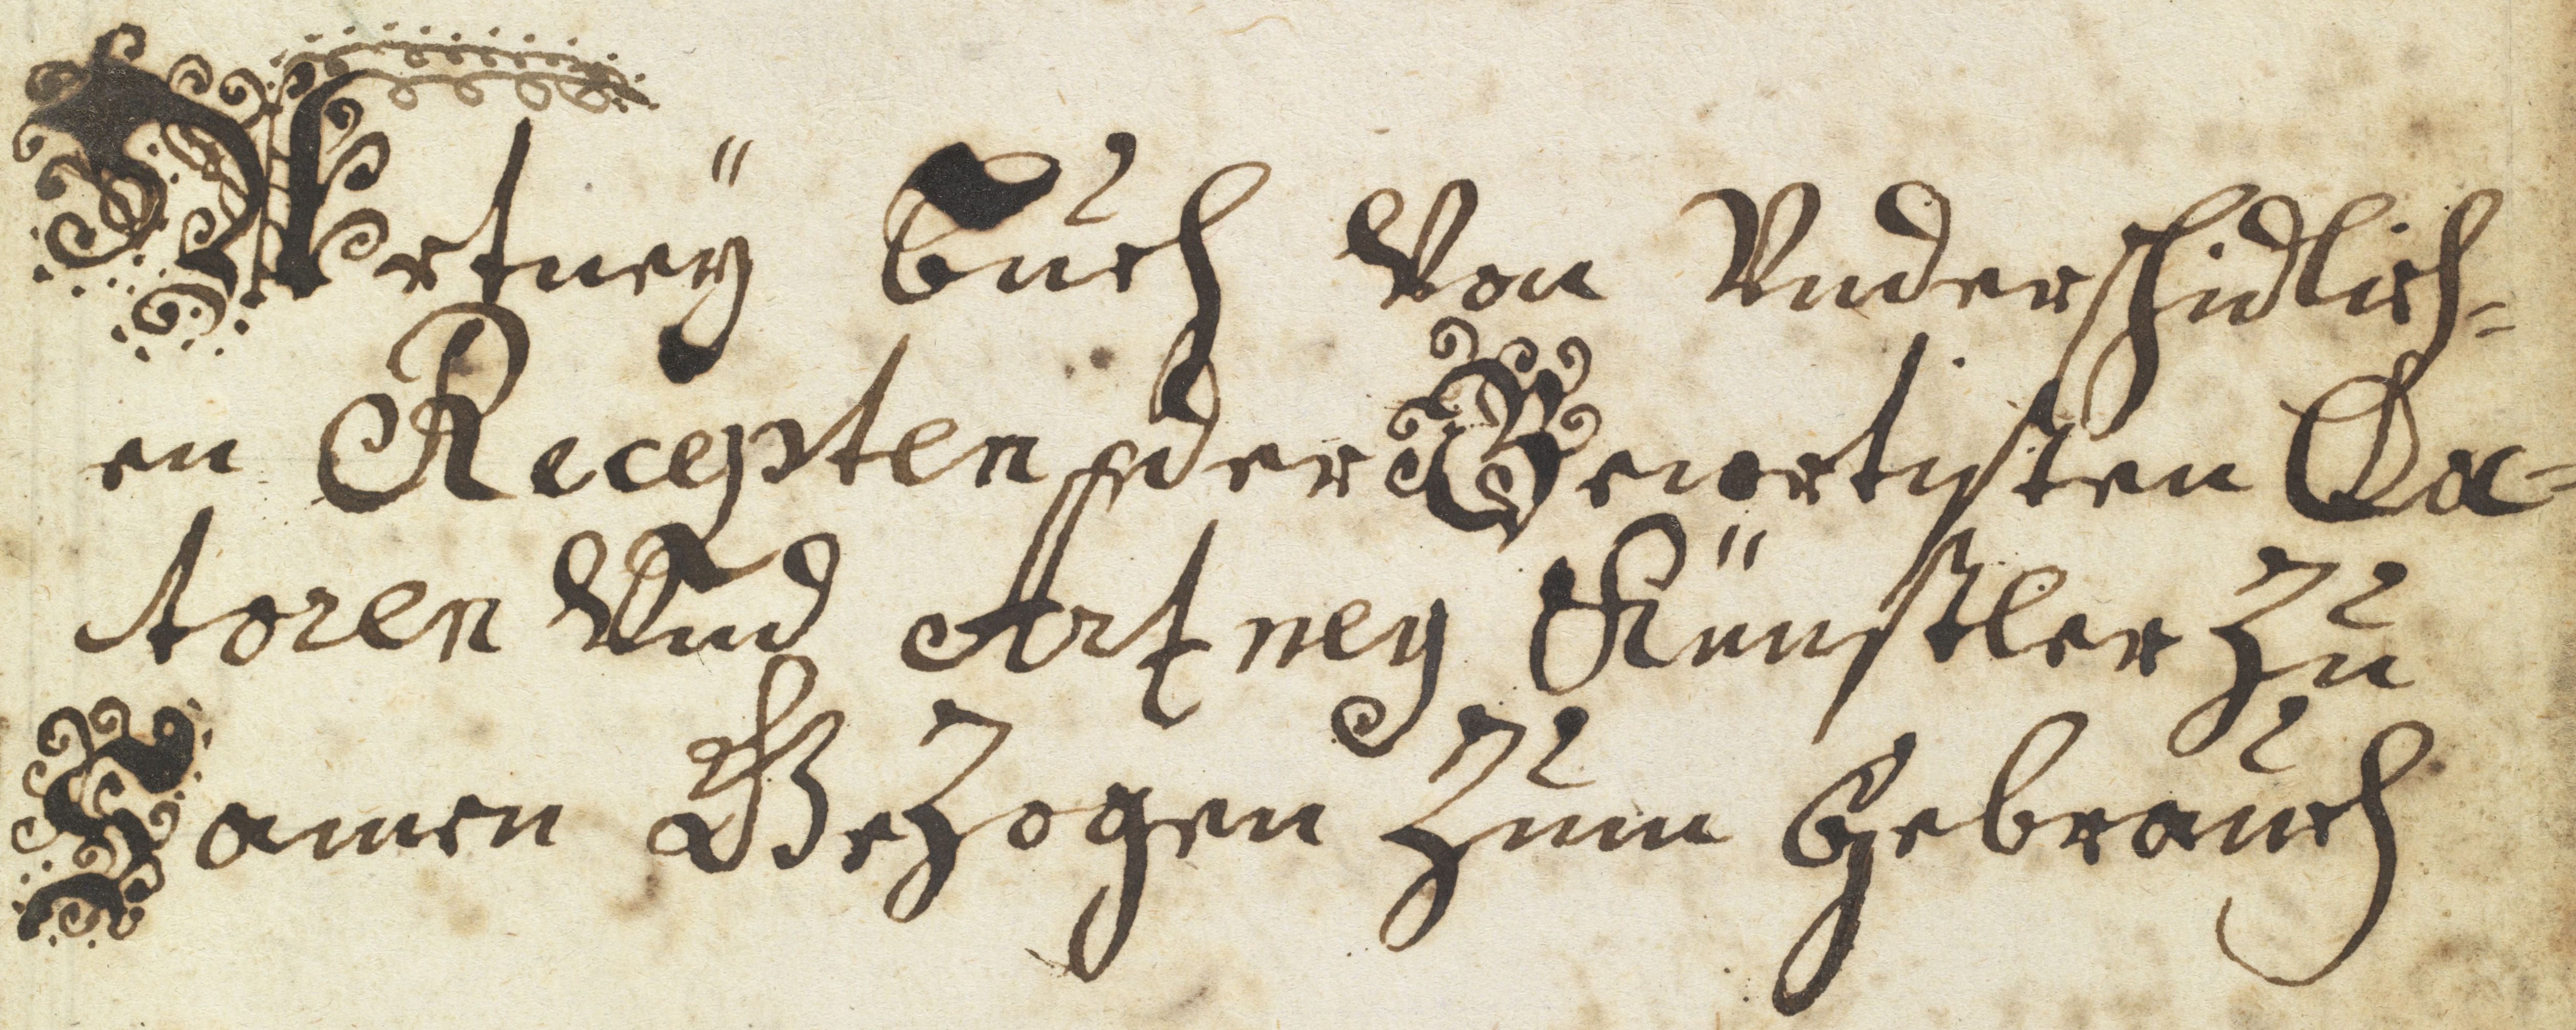 Artneÿ buch Von Vnderschidlich=
en Recepten der Bewertisten Do=
toren Vnd Artzney Künstler Zu
Samen Gezogen Zum Gebrauch